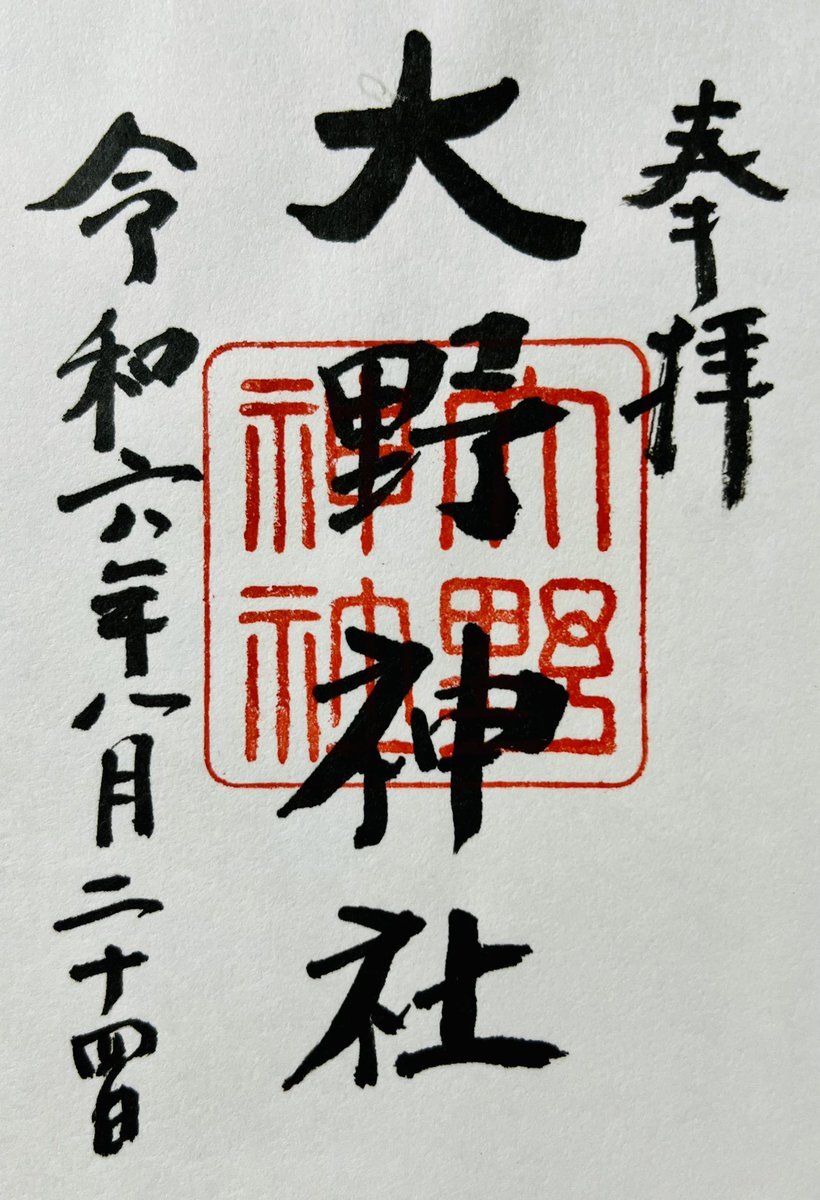 奉拝
大野神社
大野神社
令和六年八月二十四日